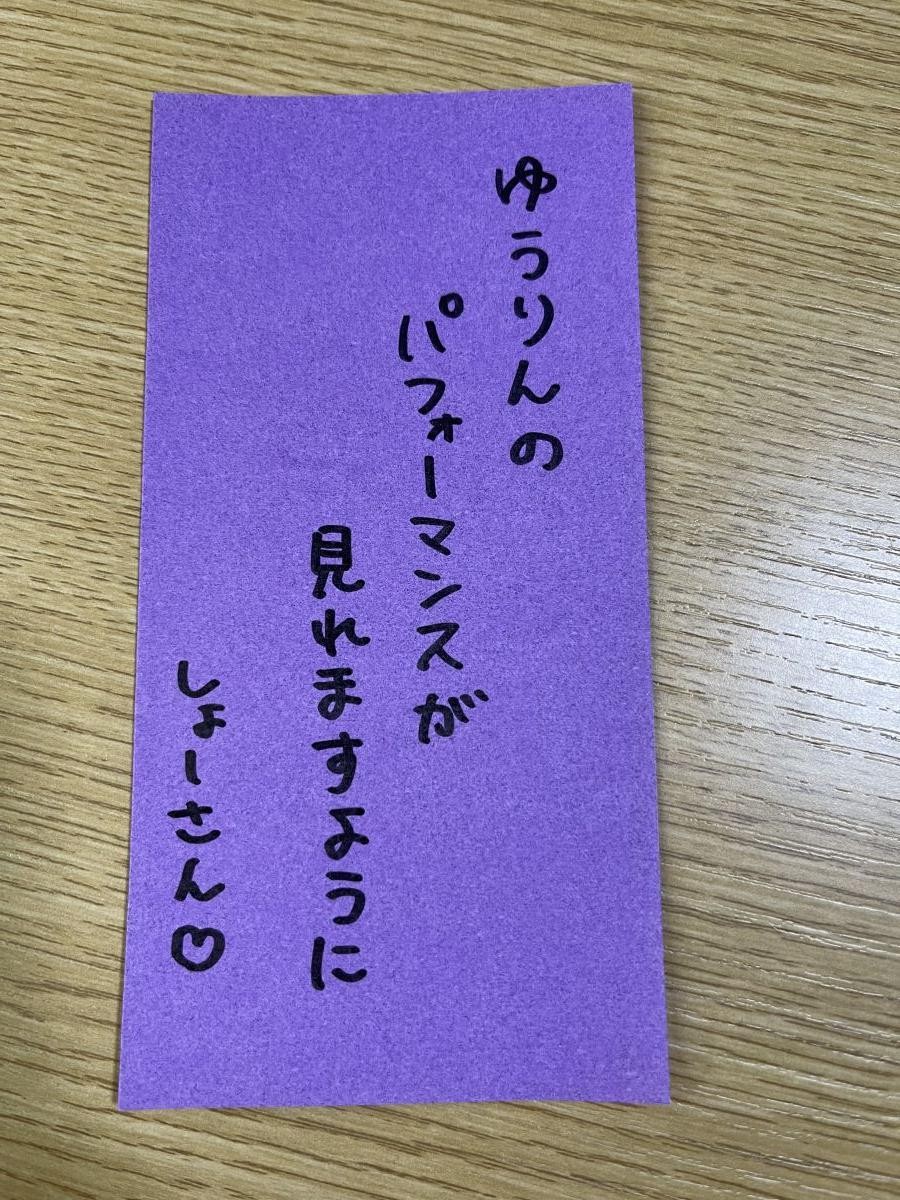 ゆうりんの
パフォーマンスが
見れますように
しょーさん♡